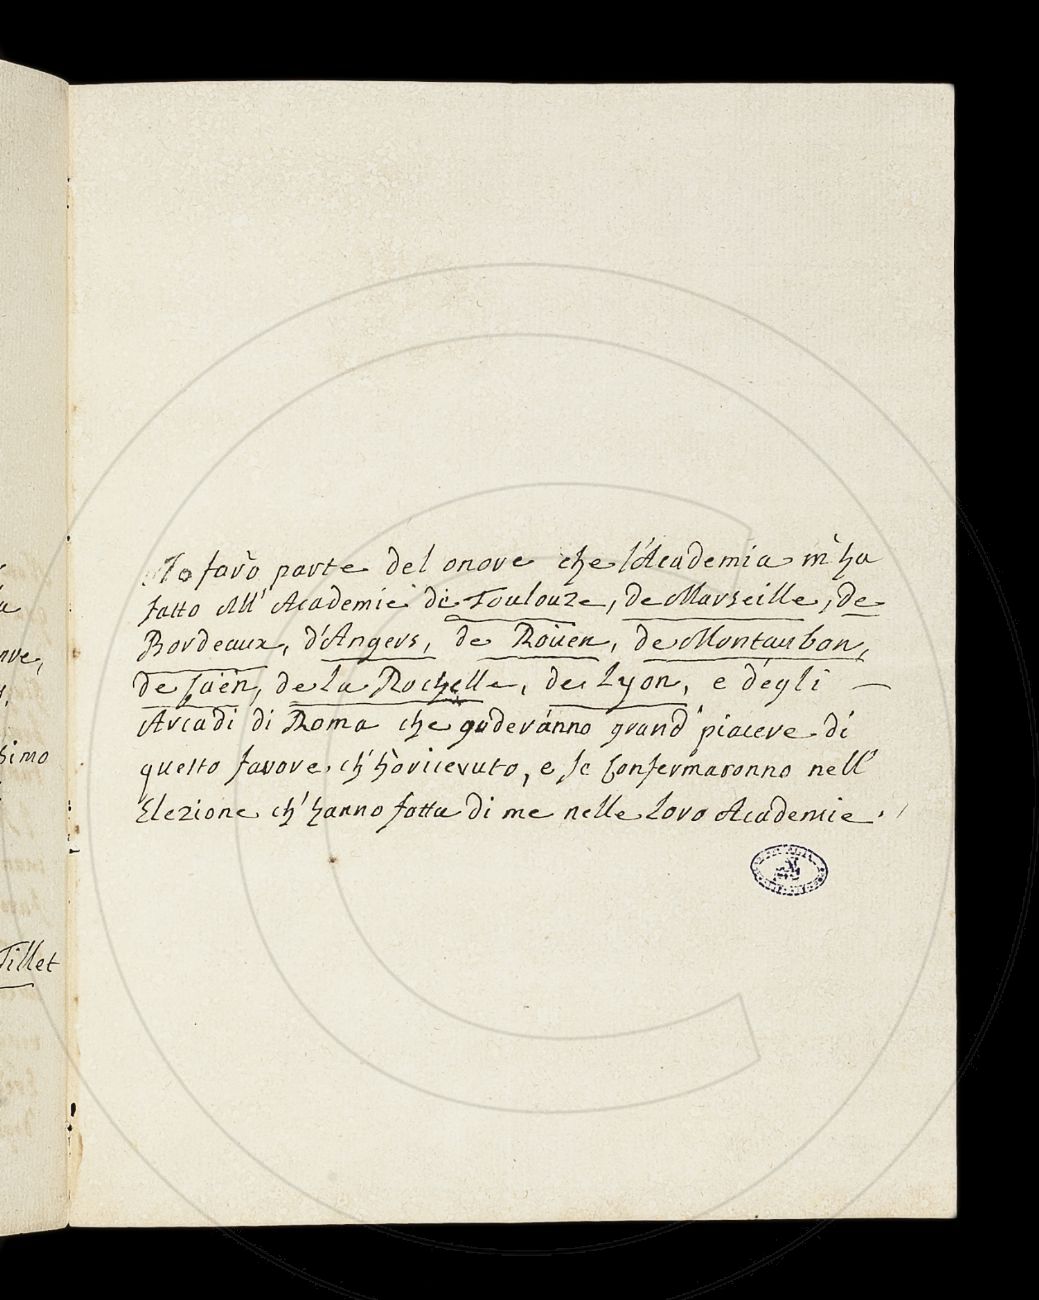 Io farò parte del onore che l'Academia m'ha
fatto All' Academie de Toulouze, de Marseille, de
Bordeaux, d'Angers, de Roüen, de Montaubon,
de Caën, de La Rochelle, de Lyon, e dégli —
Arcadi di Roma che goderánno grand piacere di
questo favore ch' hò ricevuto, e se confermaronno nell'
Elezione ch' hanno fatta di me nelle loro Academie.
nve,
simo
Tillet